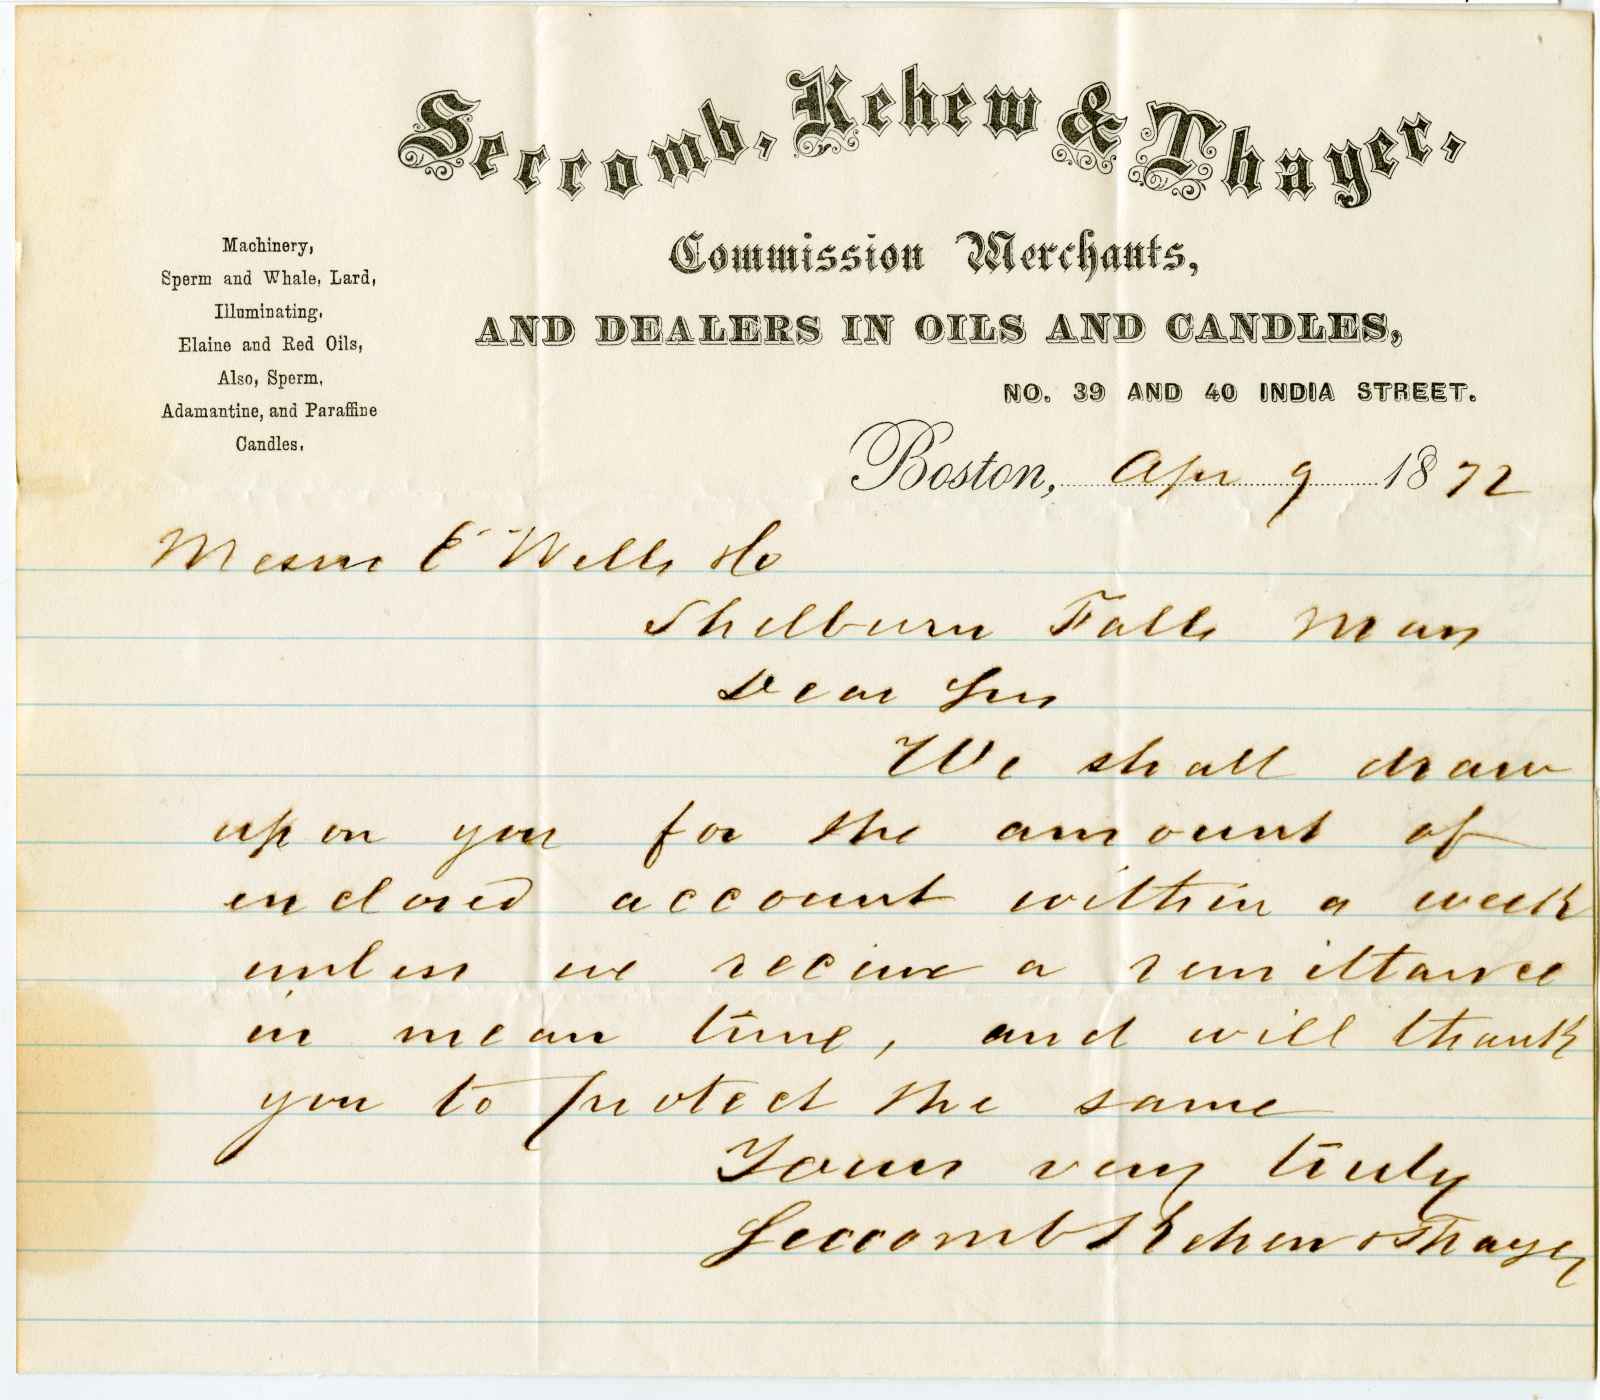 Seccomb, Kehew & Thayer,
Commission Merchants,
AND DEALERS IN OILS AND CANDLES,
NO. 39 AND 40 INDIA STREET.
Machinery,
Sperm and Whale, Lard,
Illuminating,
Elaine and Red Oils,
Also, Sperm,
Adamantine, and Paraffine
Candles.
Boston, Apr 9 1872
Messrs E Wells Co
Shelburn Falls Mass
Dear Sirs
We shall draw
upon you for the amount of
enclosed account within a week
unless we receive a remittance
in mean time, and will thank
you to protect the same
Yours very truly
Seccomb Kehew & Thayer